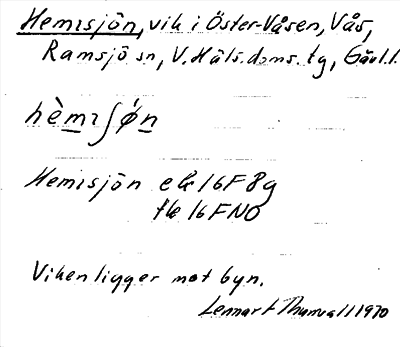 Hemisjön, vik i Öster-Våsen, Vås,
Ramsjö sn, V. Häls. doms. tg, Gävl. l.
hèmıʃǿn
Hemisjön ek 16F8g
tk 16FNO
Viken ligger mot byn.
Lennart Thunvall 1970